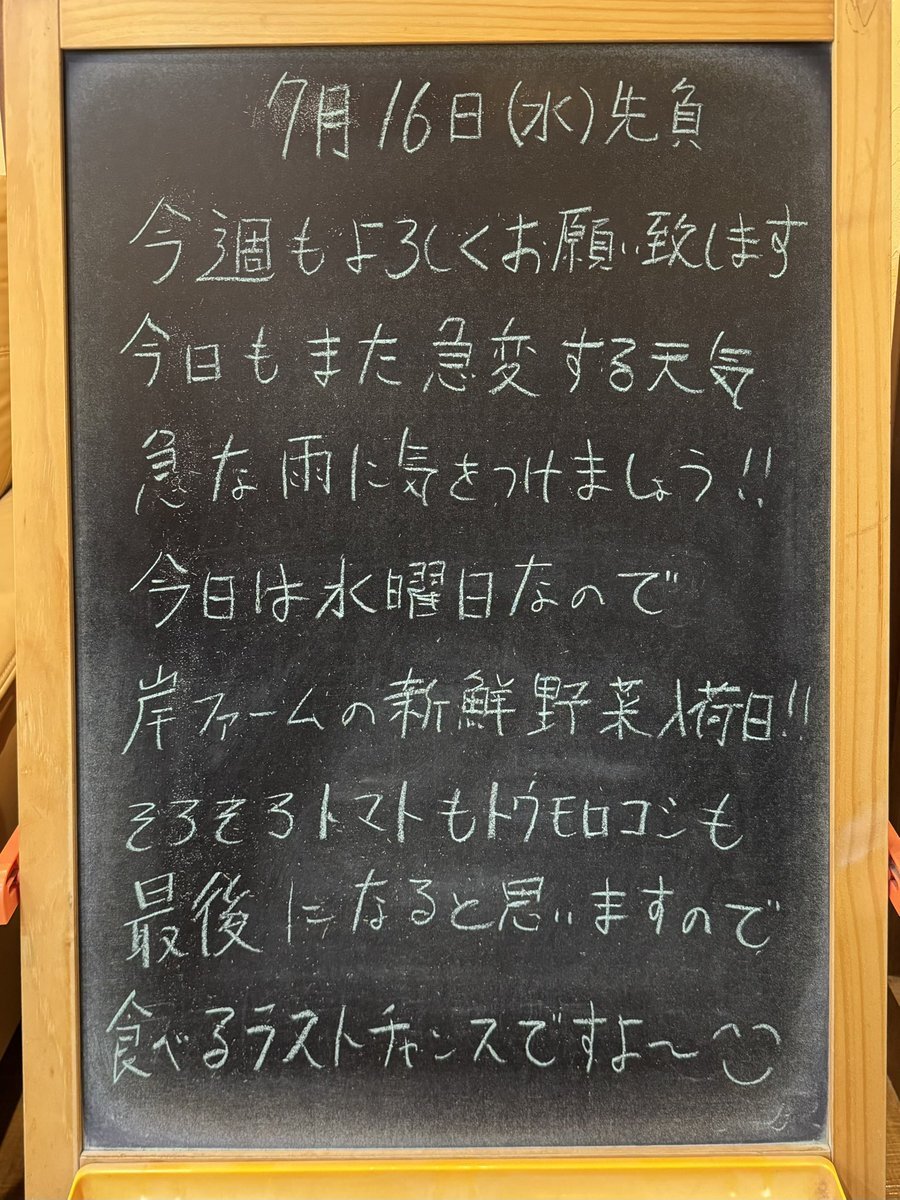 7月16日(水)先負
今週もよろしくお願い致します
今日もまた急変する天気
急な雨に気をつけましょう!!
今日は水曜日なので
岸ファームの新鮮野菜入荷日!!
そろそろトマトもトウモロコシも
最後になると思いますので
食べるラストチャンスですよ〜